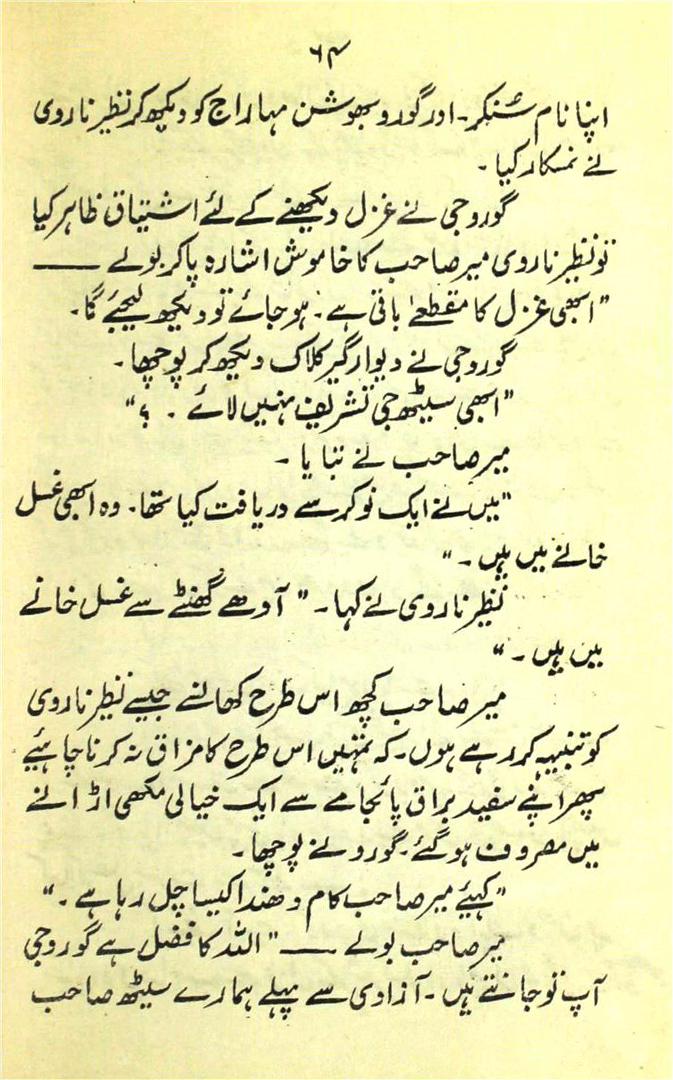 ۶۴
اپنا نام سُنکر۔ اور گورو بھوشن مہاراج کو دیکھ کر نظیر ناروی
نے نمسکار کیا۔
گورو جی نے غزل دیکھنے کے لئے اشتیاق ظاہر کیا
تو نظیر ناروی میر صاحب کا خاموش اشارہ پا کر بولے ——
"ابھی غزل کا مقطع باقی ہے۔ ہو جائے تو دیکھ لیجئے گا۔
گورو جی نے دیوار گیر کلاک دیکھ کر پوچھا۔
"ابھی سیٹھ جی تشریف نہیں لائے ۔ ؟"
میر صاحب نے بتایا ۔
"میں نے ایک نوکر سے دریافت کیا تھا۔ وہ ابھی غسل
خانے میں ہیں۔"
نظیر ناروی نے کہا۔ "آدھے گھنٹے سے غسل خانے
میں ہیں۔"
میر صاحب کچھ اس طرح کھانسے جیسے نظیر ناروی
کو تنبیہہ کر رہے ہوں۔ کہ تمہیں اس طرح کا مزاق نہ کرنا چاہئیے
پھر اپنے سفید براق پائجامے سے ایک خیالی مکھی اڑانے
میں مصروف ہو گئے۔ گورو نے پوچھا۔
"کہیئے میر صاحب کام دھندا کیسا چل رہا ہے ۔"
میر صاحب بولے —— "اللہ کا فضل ہے گورو جی
آپ تو جانتے ہیں۔ آزادی سے پہلے ہمارے سیٹھ صاحب